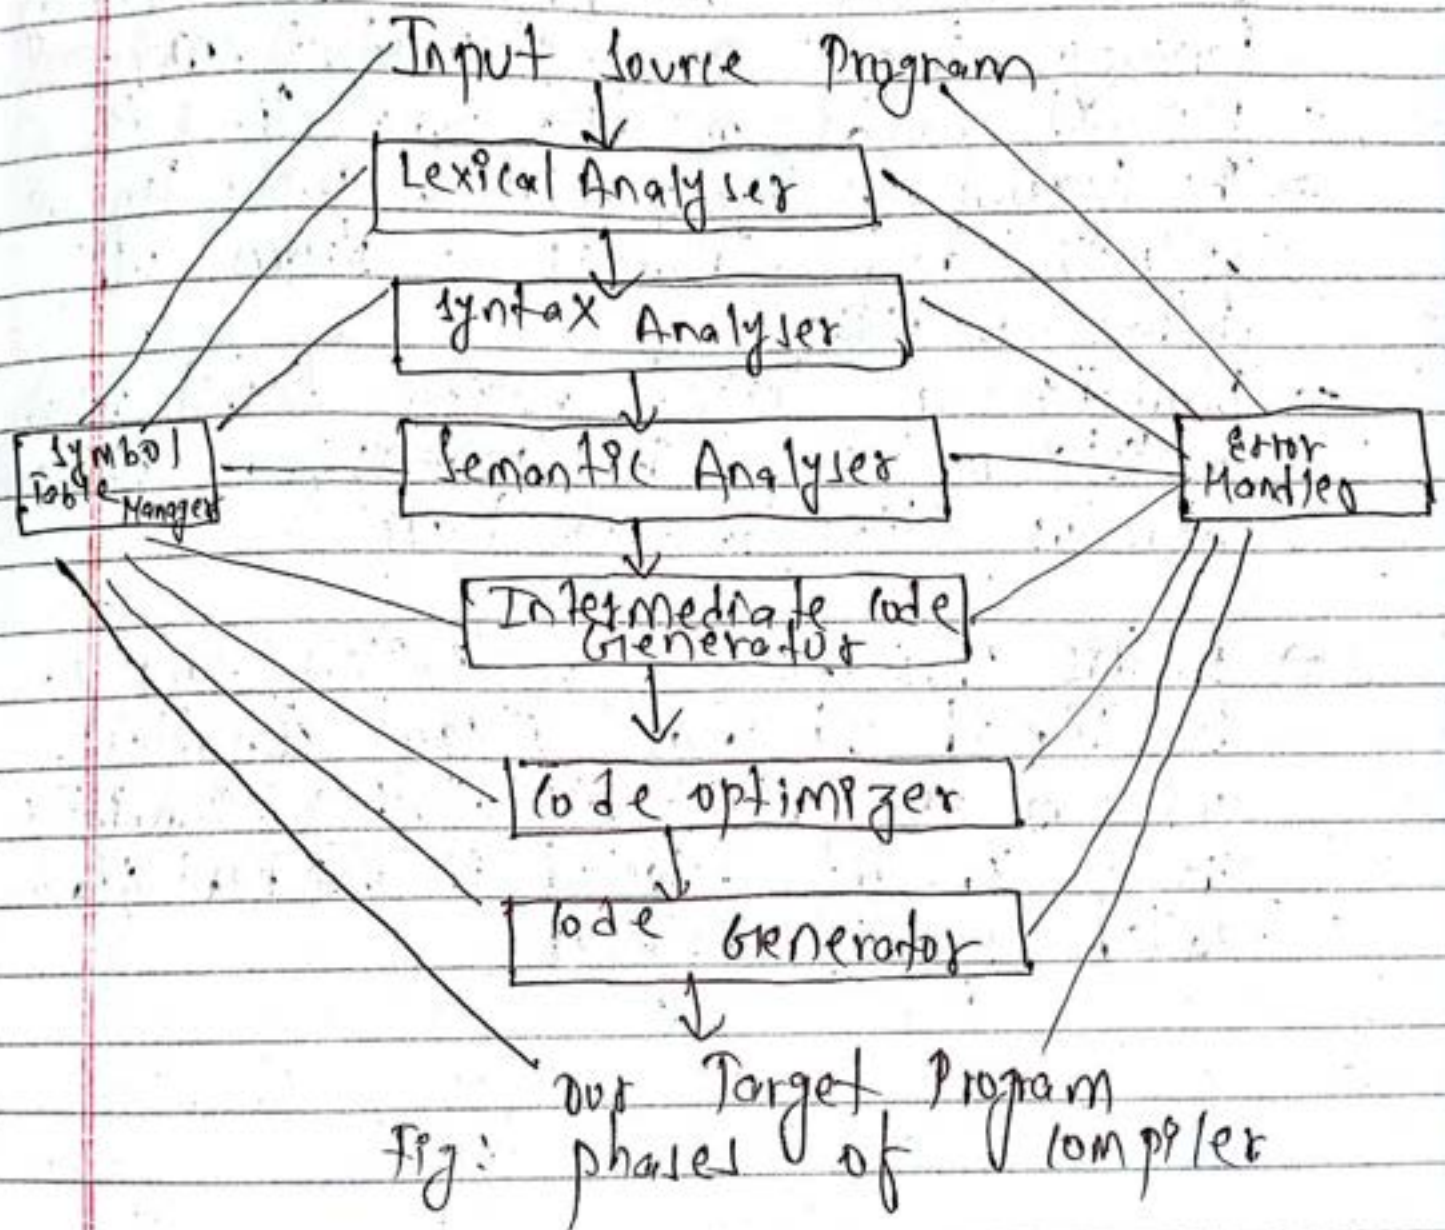 Input Source Program
Lexical Analyser
Syntax Analyser
Symbol
Table Manager
Semantic Analyser
Error
Handler
Intermediate Code
Generator
Code optimizer
Code Generator
our Target Program
Fig: phases of compiler